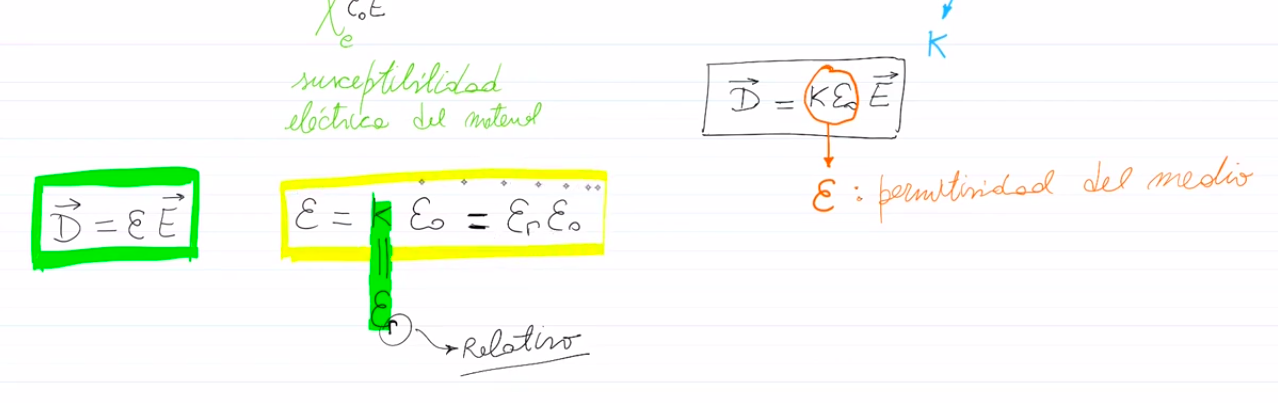 χₑ ε₀E
K
susceptibilidad
eléctrica del material
D⃗ = Kε₀ E⃗
ε : permitividad del medio
D⃗ = ε E⃗
ε = K ε₀ = εᵣ ε₀
||
εᵣ
Relativo